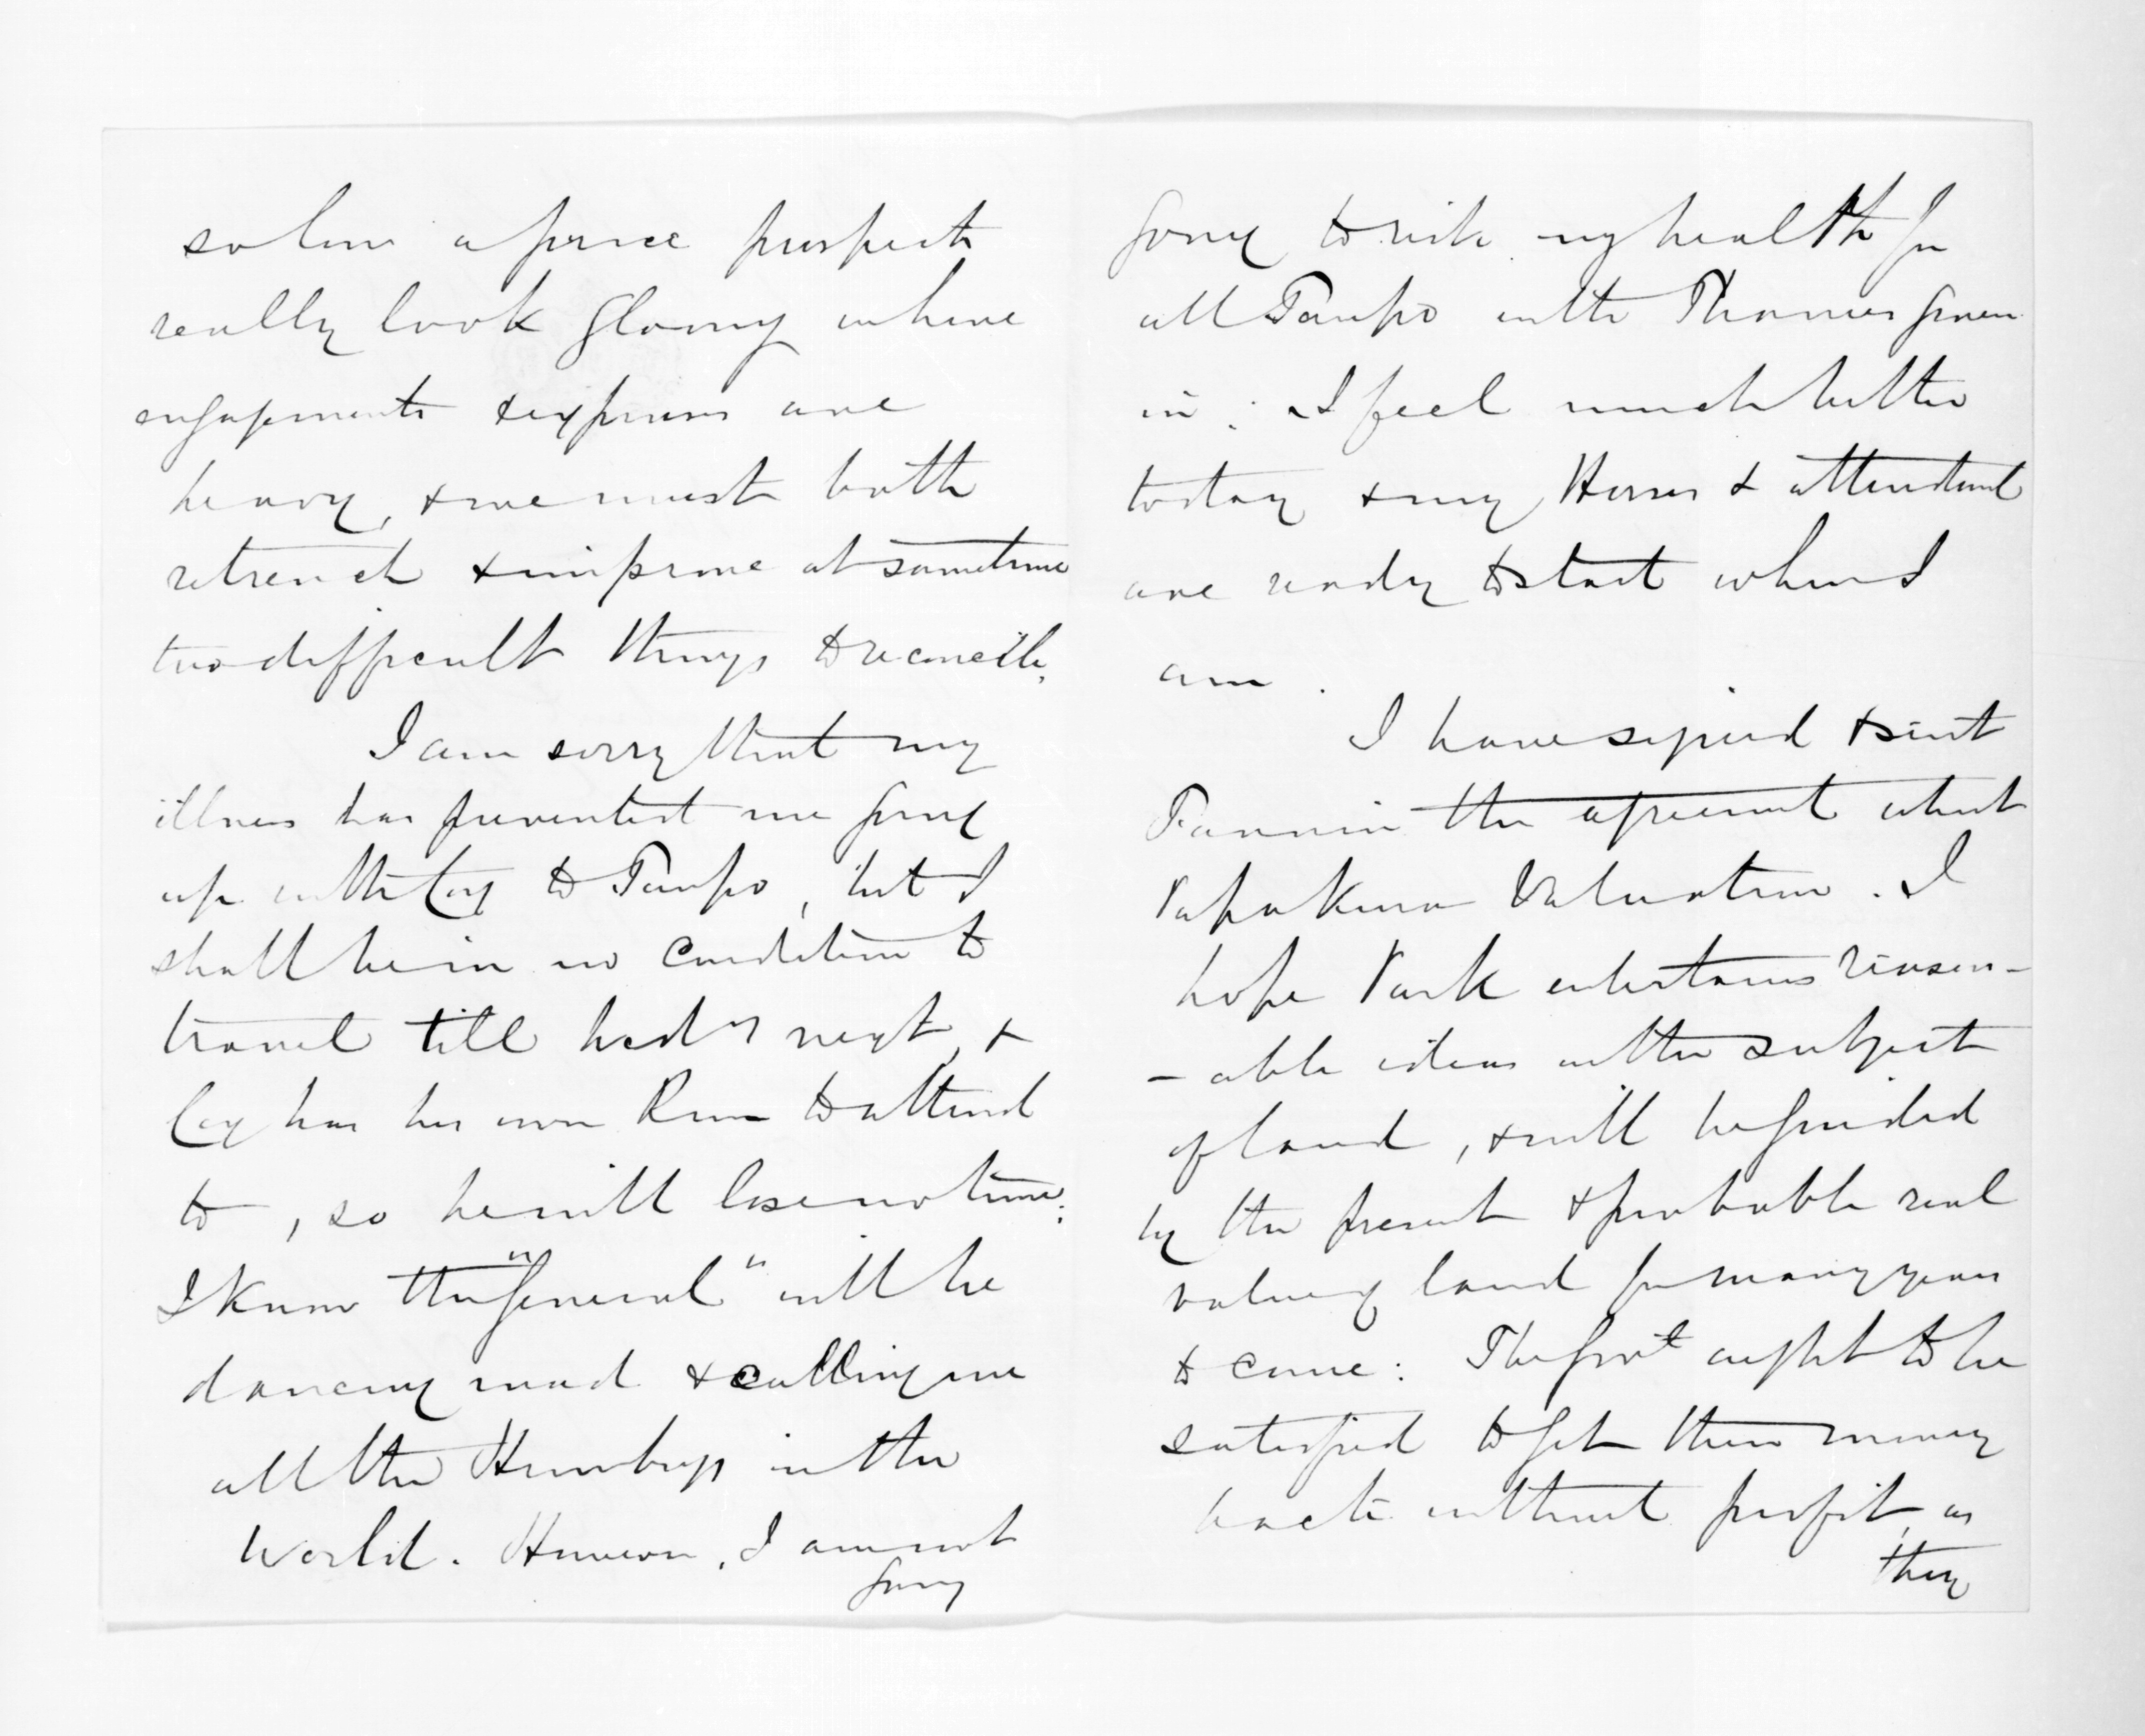 so low a price prospects
really look gloomy where
engagements & expenses are
heavy, & we must both
retrench & improve at sametime
two difficult things to reconcile.
I am sorry that my
illness has prevented me going
up with Cox to Taupo, but I
shall be in no condition to
travel till Wedy next, &
Cox has his own Run to attend
to, so he will lose no time;
I know the "General" will be
dancing mad & calling me
all the Humbugs in the
World. However, I am not
going
going to risk my health for
all Taupo with Thames given
in: I feel much better
today & my Horses & attendant
are ready to start when I
am.
I have signed & sent
Fannin the agreement about
Papakura Valuation. I
hope Park entertains reason-
-able ideas with the subject
of land, & will be guided
by the present & probable real
value of land for many years
to come: The Govt ought to be
satisfied to get their money
back without profit, as
they